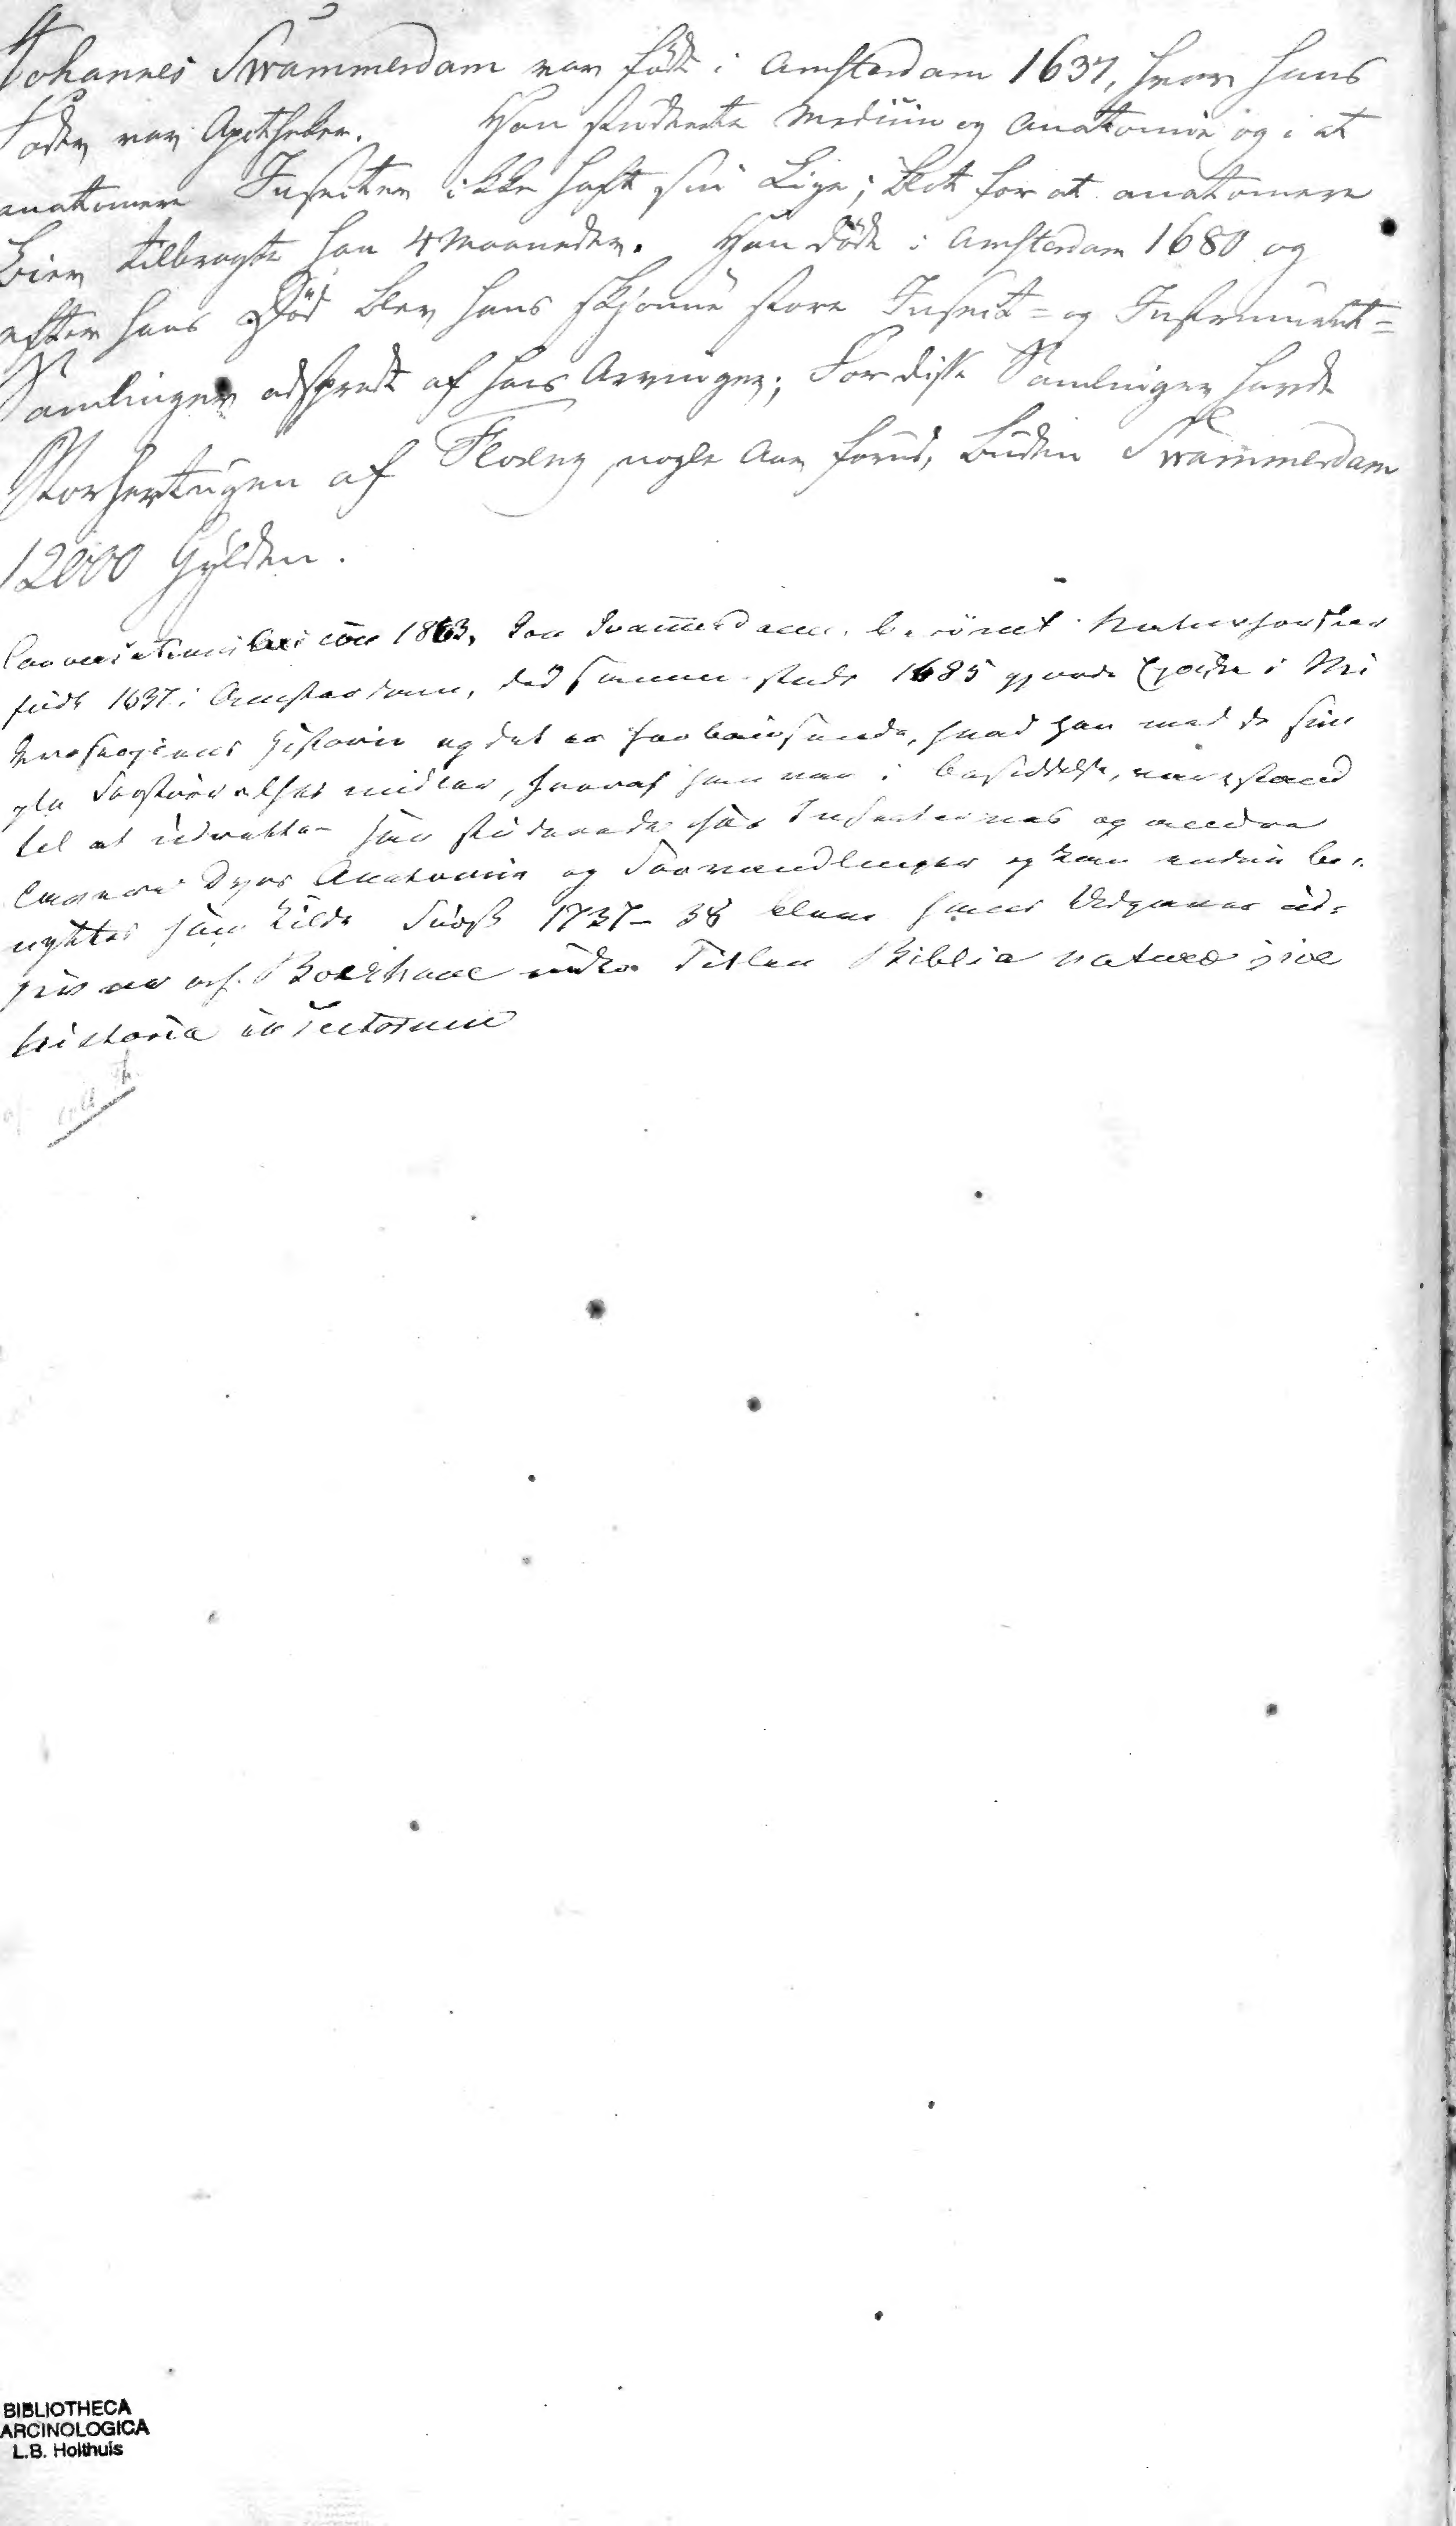 Johannes Swammerdam var født i Amsterdam 1637, hvor hans
Fader var Apotheker. Han studeerte Medicin og Anatomie og i at
anatomere Insecter ikke haft sin Lige; blot for at anatomere
Bier tilbragte han 4 Maaneder. Han døde i Amsterdam 1680 og
efter hans Død blev hans skjønne store Insect= og Instrument=
Samlinger adspredt af hans Arvinger; For disse Samlinger havde
Storhertugen af Florenz, nogle Aar forud, buden Swammerdam
12000 Gylden.
Conversationslexicon 1863, Jan Svammerdam, berömt Naturforsker
født 1637 i Amsterdam, død sammesteds 1685 gjorde Epoche i Mi
kroskopiens Historie og det er forbausende, hvad han med de sim
ple Forstørrelses midler, hvoraf han var i Besiddelse, var istand
til at udrette. Han studerede især Insecternes og andre
lavere Dyrs Anatomie og Forvandlinger og kan endnu be=
nyttes som Kilde. Først 1737–38 bleve hans Udgaver ud=
givne af Boerhave under Titlen Biblia naturæ sive
historia insectorum
BIBLIOTHECA
ARCINOLOGICA
L.B. Holthuis